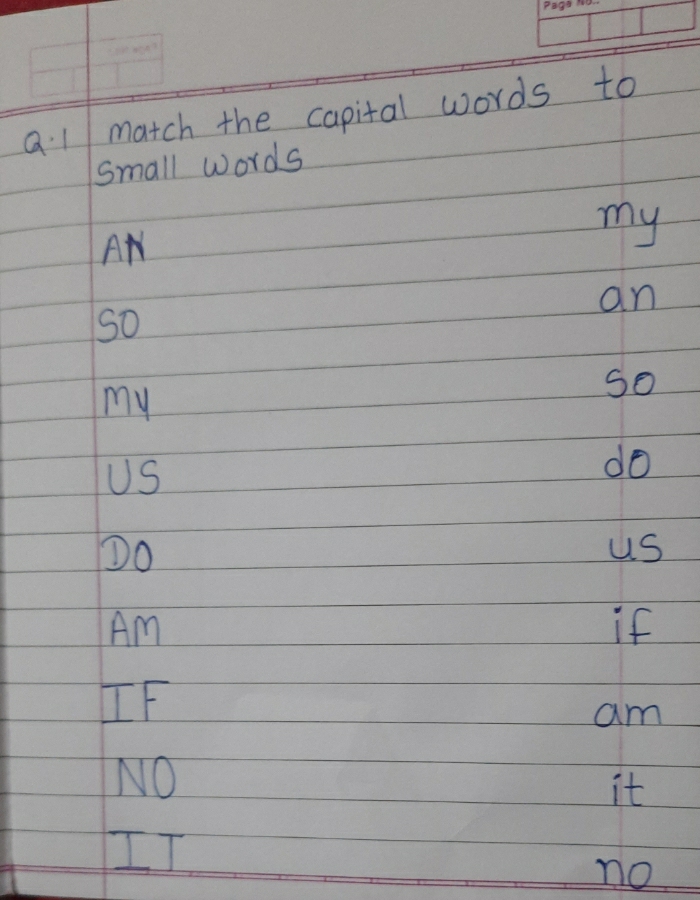 Page No..
Q.1 Match the capital words to
small words
AN my
SO an
MY so
US do
DO us
AM if
IF am
NO it
IT no